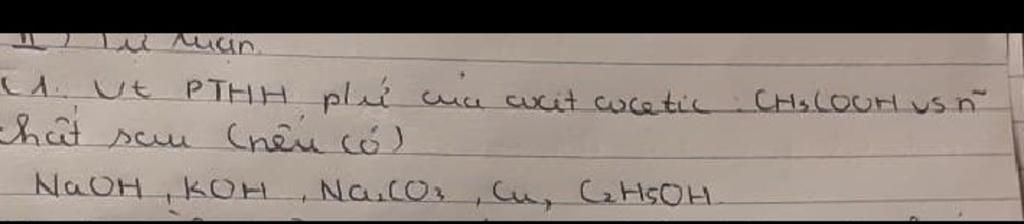 II) Tự luận
C1. Vt PTHH pứ của axit axetic : CH3COOH vs n~
chất sau (nếu có)
NaOH, KOH, Na2CO3, Cu, C2H5OH